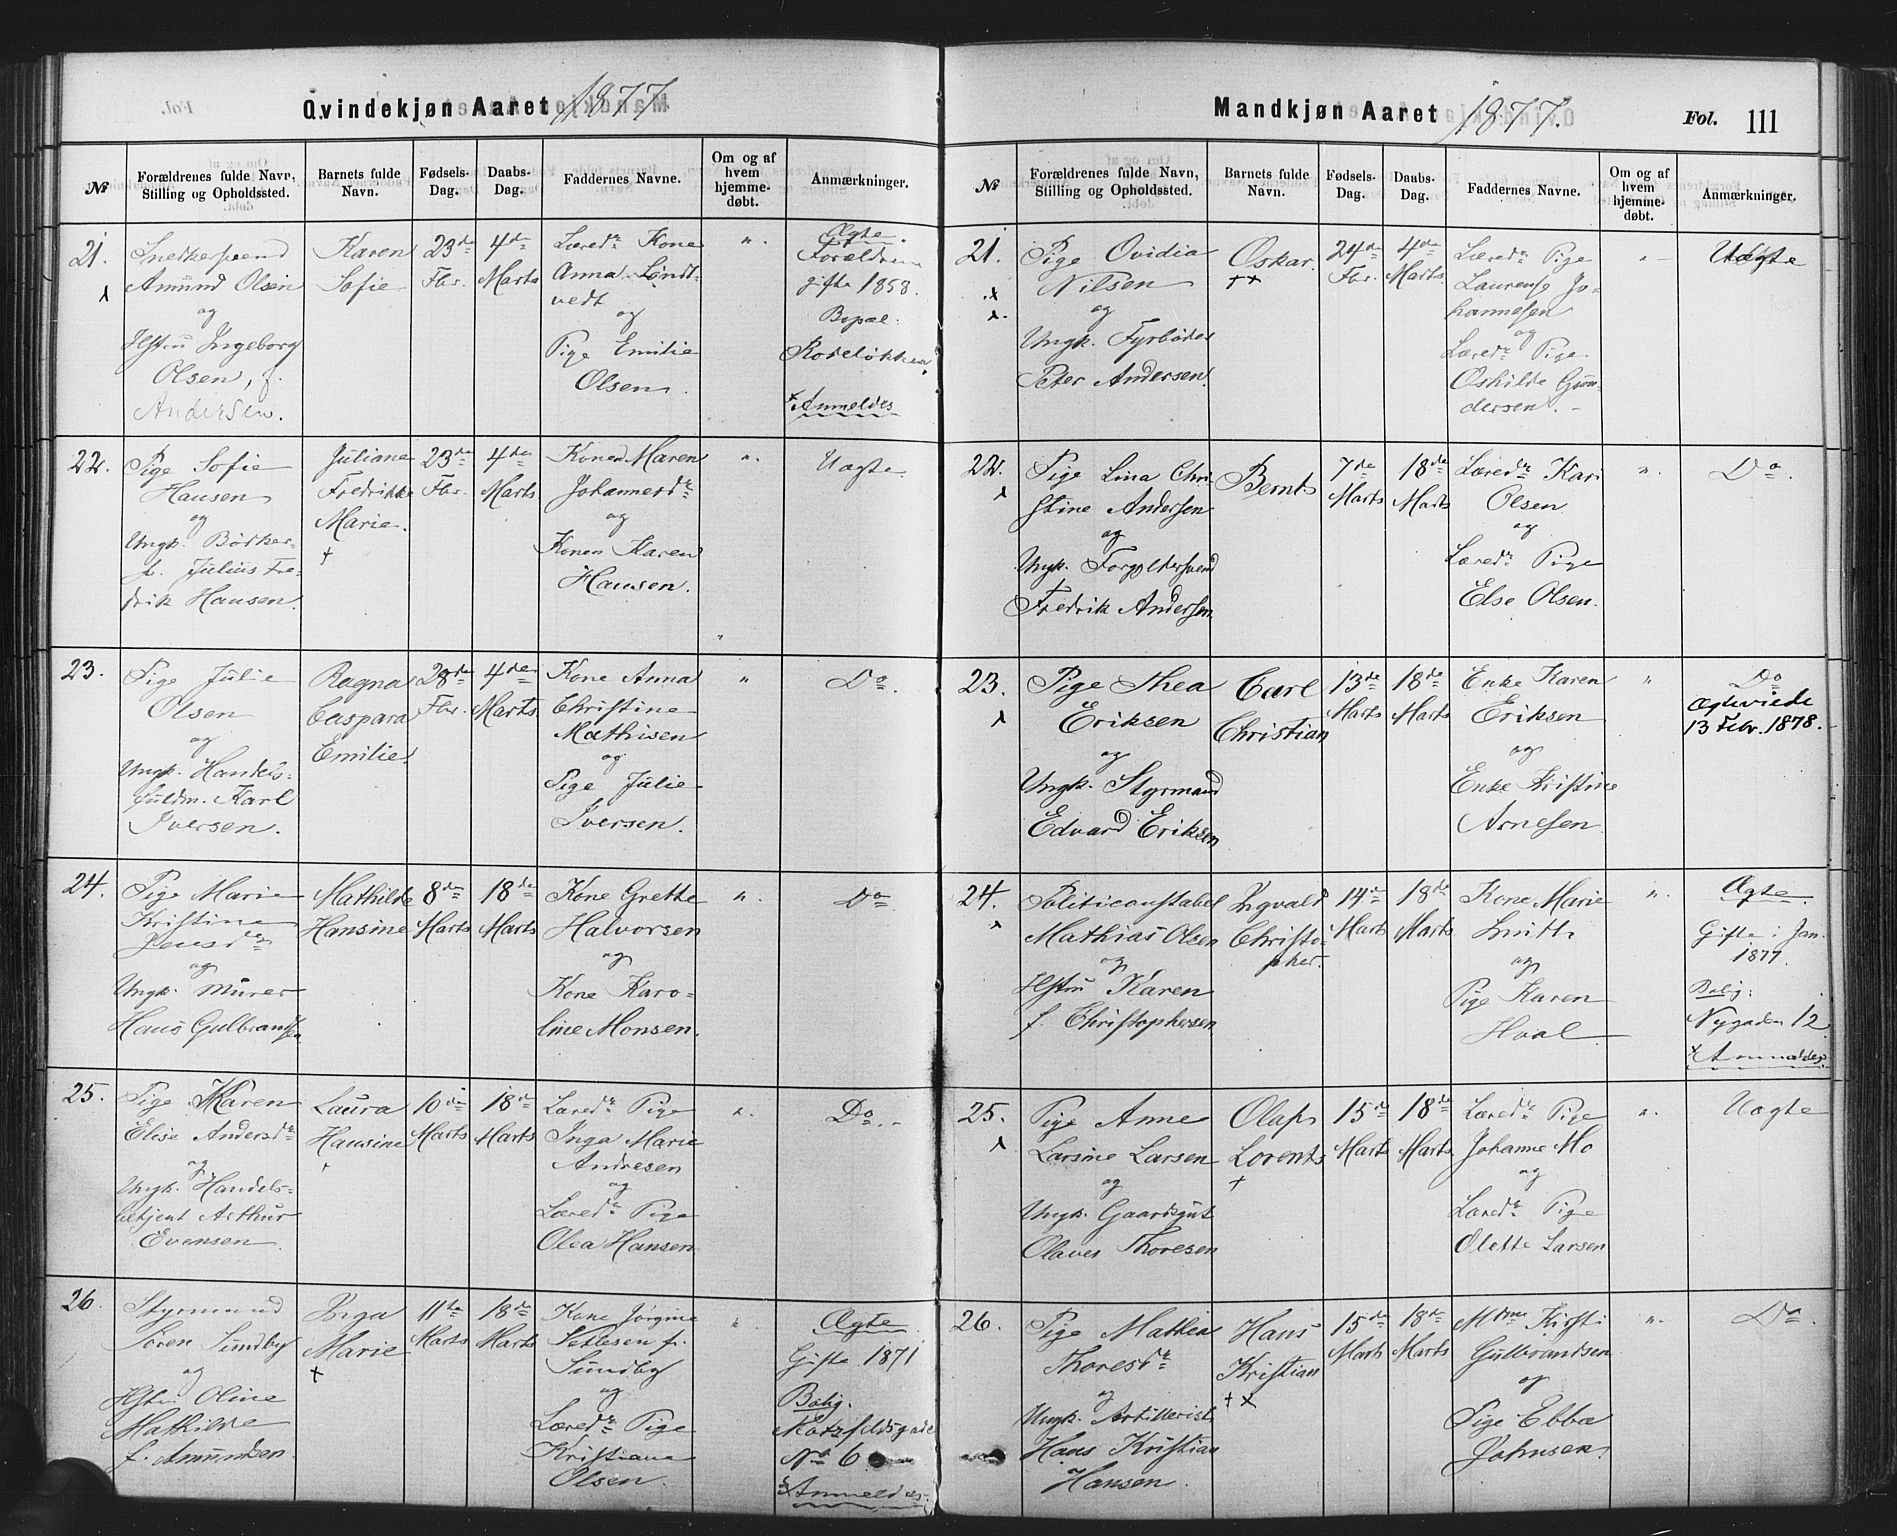 Qvindekjøn Aaret 1877
№
Forældrenes fulde Navn, Stilling og Opholdssted.
Barnets fulde Navn.
Fødsels-Dag.
Daabs-Dag.
Faddernes Navne.
Om og af hvem hjemme-døbt.
Anmærkninger.
21.
Snedkersvend
Amund Olsen
og
Hstru Ingeborg
Olsen, f.
Andersen.
Karen
Sofie
23de
Fbr.
4de
Marts
Læred. Kone
Anna Lindt-
vedt
og
Pige Emilie
Olsen
".
Ægte.
Forældrene
gifte 1858.
Bopæl:
Rodeløkken
Anmeldes
22.
Pige Sofie
Hansen
og
Ungk. Bødker-
s. Julius Fre-
drik Hansen.
Juliane
Fredrikke
Marie.
+
23de
Fbr.
4de
Marts
Konen Maren
Johannesdr
og
Konen Karen
Hansen.
".
Uægte
23.
Pige Julie
Olsen
og
Ungk. Handels-
fuldm. Karl
Iversen.
Ragna
Caspara
Emilie.
28de
Fbr.
4de
Marts
Kone Anna
Christine
Mathisen
og
Pige Julie
Iversen.
"
Do.
24.
Pige Marie
Kristine
Jensdr
og
Ungk. Murer
Hans Gulbrandsen
Mathilde
Hansine
8de
Marts
18de
Marts
Kone Grette
Halvorsen
og
Kone Karo-
line Monsen.
".
Do
25.
Pige Karen
Elise Andersdr
og
Ungk. Handels-
betjent Arthur
Evensen
Laura
Hansine
10de
Marts
18de
Marts
Læred. Pige
Inga Marie
Andresen
og
Læred. Pige
Olea Hansen
".
Do.
26.
Styrmand
Søren Sundby
og
Hstru Oline
Mathilde
f. Amundsen.
Inga
Marie
+
11te
Marts
18de
Marts
Kone Jørgine
Settesen f.
Sundby
og
Læred. Pige
Kristiana
Olsen.
"
Ægte
Gifte 1871
Bolig.
Motzfeldsgade
No 6
Anmeldes.
Mandkjøn Aaret 1877.
Fol. 111
№
Forældrenes fulde Navn, Stilling og Opholdssted.
Barnets fulde Navn.
Fødsels-Dag.
Daabs-Dag.
Faddernes Navne.
Om og af hvem hjemme-døbt.
Anmærkninger.
21.
Pige Ovidia
Nilsen
og
Ungk. Fyrbøder
Peter Andersen.
Oskar.
++
24de
Fbr.
4de
Marts
Læred. Pige
Laurense Jo-
hannesen
og
Læred. Pige
Oskilde Gun-
dersen.
"
Uægte
22.
Pige Lina Chri-
stine Andersen
og
Ungk. Forgyldersvend
Fredrik Andersen.
Bernt
7de
Marts
18de
Marts
Læred. Kari
Olsen
og
Læred. Pige
Else Olsen.
".
Do.
23.
Pige Thea
Eriksen
og
Ungk. Styrmand
Edvard Eriksen
Carl
Christian
13de
Marts
18de
Marts
Enke Karen
Eriksen
og
Enke Kristine
Arnesen
"
Do
Ægteviede
13 Febr. 1878.
24.
Politiconstabel
Mathias Olsen
og
Hstru Karen
f. Christophersen
Ingvald
Christo-
pher.
14de
Marts
18de
Marts
Kone Marie
Smith
og
Pige Karen
Hval
".
Ægte.
Gifte i Jan.
1877.
Bolig:
Nygaden 12
Anmeldes.
25.
Pige Anne
Larsine Larsen
og
Ungk. Gaardsgut
Olaves Thoresen
Olaf
Lorents
+
15de
Marts
18de
Marts
Læred. Pige
Johanne Mo
og
Læred. Pige
Olette Larsen
".
Uægte
26.
Pige Mathea
Thoresdr
og
Ungk. Artillerist
Hans Kristian
Hansen.
Hans
Kristian
++
15de
Marts
18de
Marts
Mdme Kirsti
Gulbrandsen
og
Pige Ebba
Johnsen.
".
Do.